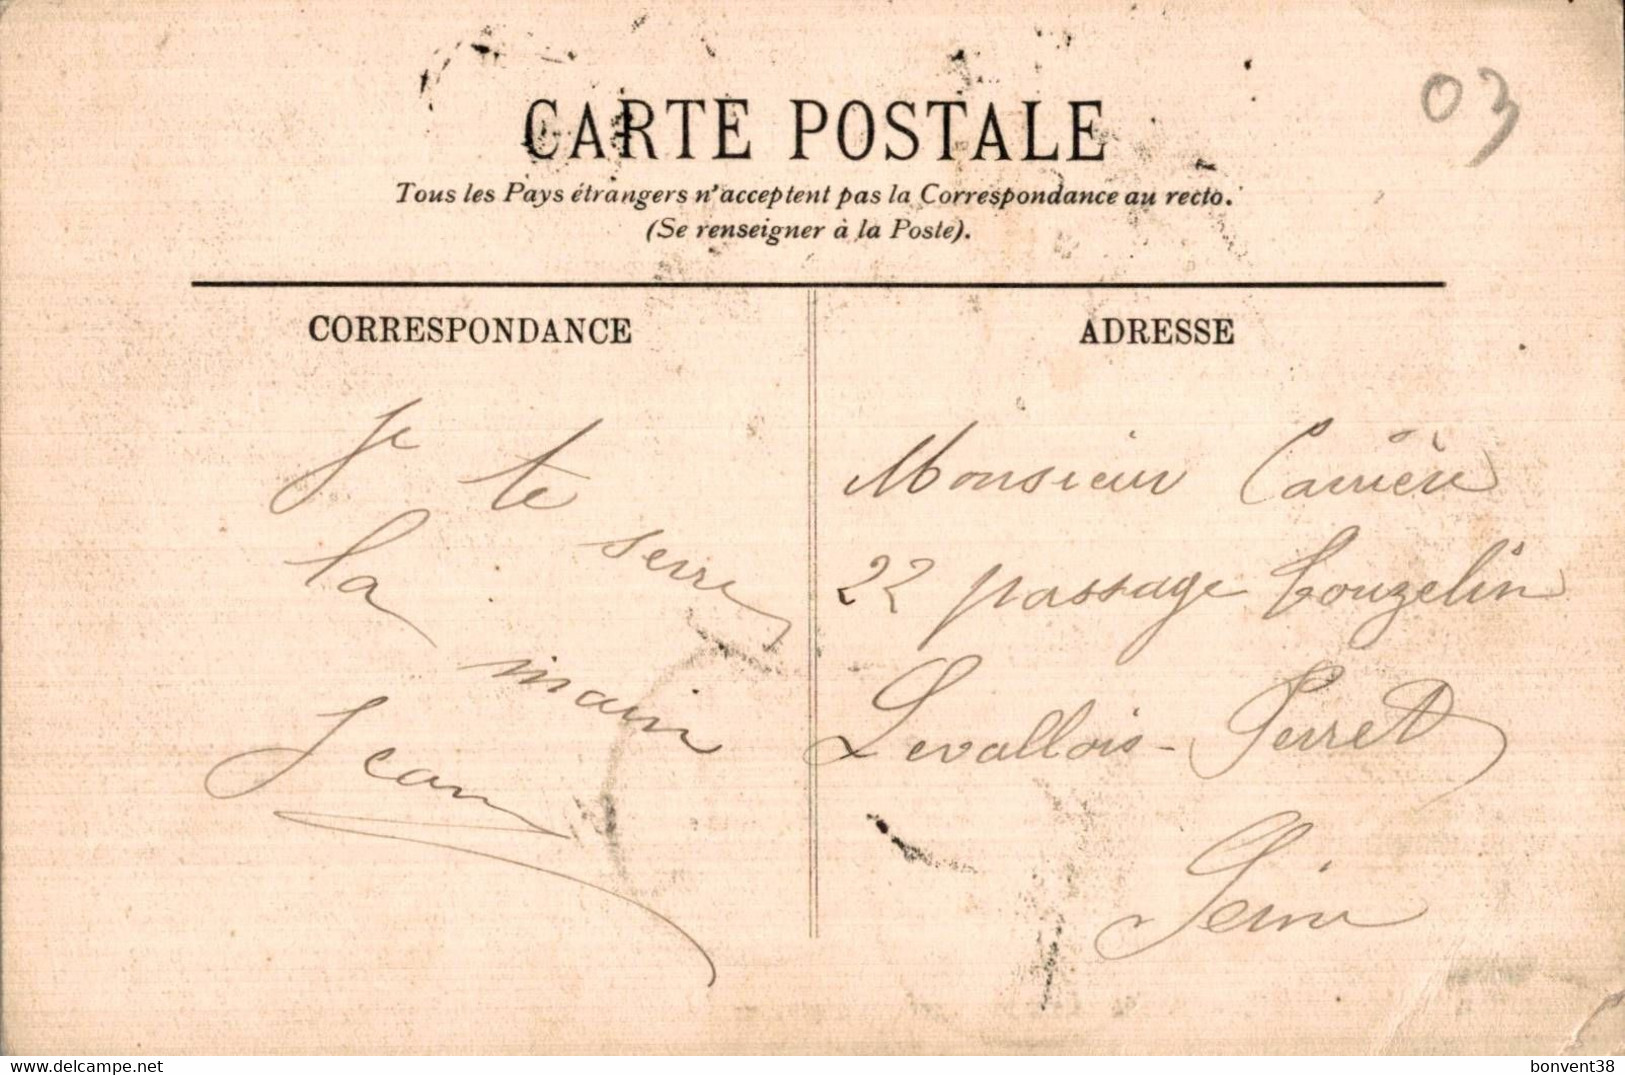 03
CARTE POSTALE
Tous les Pays étrangers n'acceptent pas la Correspondance au recto.
(Se renseigner à la Poste).
CORRESPONDANCE
Je te serre
la main
Jean
ADRESSE
Monsieur Carrière
22 passage Couzelin
Levallois-Perret
Seine
bonvent38